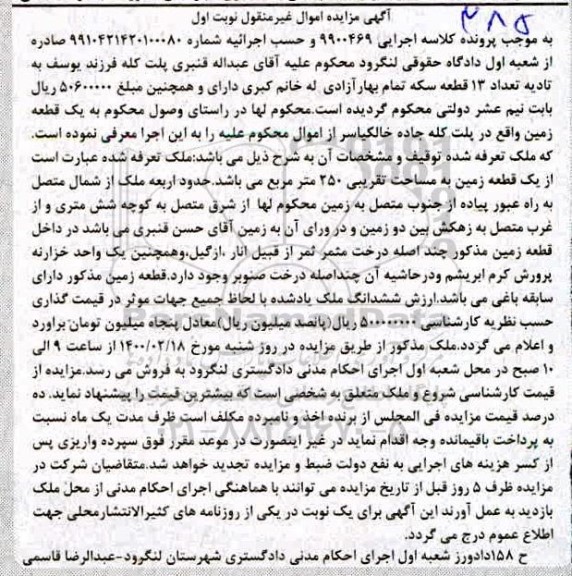 ۲۸۵
آگهی مزایده اموال غیرمنقول نوبت اول
به موجب پرونده کلاسه اجرایی ۹۹۰۰۴۶۹ و حسب اجرائیه شماره ۹۹۱۰۴۲۱۴۲۰۱۰۰۰۸۰ صادره
از شعبه اول دادگاه حقوقی لنگرود محکوم علیه آقای عبداله قنبری پلت کله فرزند یوسف به
تادیه تعداد ۱۳ قطعه سکه تمام بهار آزادی له خانم کبری دارای و همچنین مبلغ ۵۰۶۰۰۰۰۰ ریال
بابت نیم عشر دولتی محکوم گردیده است.محکوم لها در راستای وصول محکوم به یک قطعه
زمین واقع در پلت کله جاده خالکیاسر از اموال محکوم علیه را به این اجرا معرفی نموده است.
که ملک تعرفه شده توقیف و مشخصات آن به شرح ذیل می باشد:ملک تعرفه شده عبارت است
از یک قطعه زمین به مساحت تقریبی ۲۵۰ متر مربع می باشد.حدود اربعه ملک از شمال متصل
به راه عبور پیاده از جنوب متصل به زمین محکوم لها از شرق متصل به کوچه شش متری و از
غرب متصل به زهکش بین دو زمین و در ورای آن به زمین آقای حسن قنبری می باشد در داخل
قطعه زمین مذکور چند اصله درخت مثمر ثمر از قبیل انار ،ازگیل،وهمچنین یک واحد خزارنه
پرورش کرم ابریشم ودرحاشیه آن چنداصله درخت صنوبر وجود دارد.قطعه زمین مذکور دارای
سابقه باغی می باشد.ارزش ششدانگ ملک یادشده با لحاظ جمیع جهات موثر در قیمت گذاری
حسب نظریه کارشناسی ۵۰۰۰۰۰۰۰۰ ریال(پانصد میلیون ریال)معادل پنجاه میلیون تومان براورد
و اعلام می گردد.ملک مذکور از طریق مزایده در روز شنبه مورخ ۱۴۰۰/۰۲/۱۸ از ساعت ۹ الی
۱۰ صبح در محل شعبه اول اجرای احکام مدنی دادگستری لنگرود به فروش می رسد.مزایده از
قیمت کارشناسی شروع و ملک متعلق به شخصی است که بیشترین قیمت را پیشنهاد نماید. ده
درصد قیمت مزایده فی المجلس از برنده اخذ و نامبرده مکلف است ظرف مدت یک ماه نسبت
به پرداخت باقیمانده وجه اقدام نماید در غیر اینصورت در موعد مقرر فوق سپرده واریزی پس
از کسر هزینه های اجرایی به نفع دولت ضبط و مزایده تجدید خواهد شد.متقاضیان شرکت در
مزایده ظرف ۵ روز قبل از تاریخ مزایده می توانند با هماهنگی اجرای احکام مدنی از محل ملک
بازدید به عمل آورند این آگهی برای یک نوبت در یکی از روزنامه های کثیرالانتشارمحلی جهت
اطلاع عموم درج می گردد.
ح ۱۵۸دادورز شعبه اول اجرای احکام مدنی دادگستری شهرستان لنگرود-عبدالرضا قاسمی
ParsNamadData